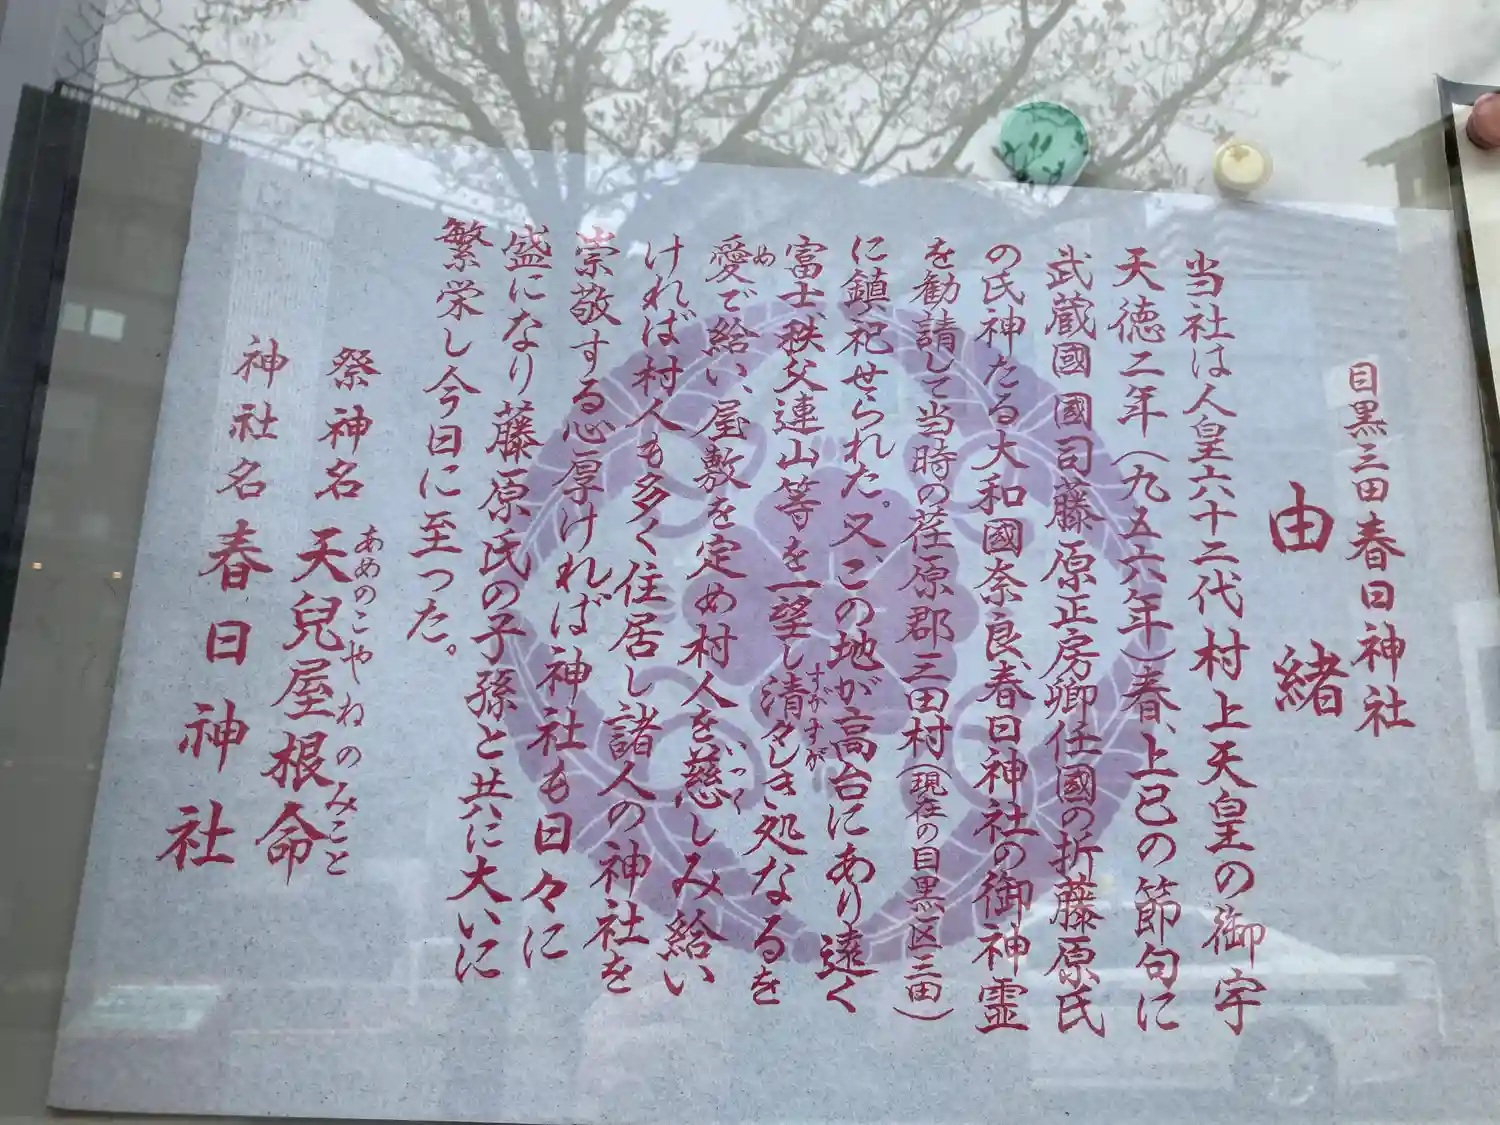 目黒三田春日神社
由緒
当社は人皇六十二代村上天皇の御宇
天徳二年(九五六年)春、上巳の節句に
武蔵國國司藤原正房卿任國の折藤原氏
の氏神たる大和國奈良、春日神社の御神霊
を勧請して当時の荏原郡三田村(現在の目黒区三田)
に鎮つ祀せられた。又、この地が高台にあり遠く
富士、秩父連山等を一望し清々しき処なるを
すがすが
愛で給い、屋敷を定め村人を慈しみ給い
め
いつく
ければ村人も多く住居し諸人の神社を
崇敬する心厚ければ神社も日々に
盛になり藤原氏の子孫と共に大いに
繁栄し今日に至つた。
祭神名 天兒屋根命
あめのこやねのみこと
神社名 春日神社